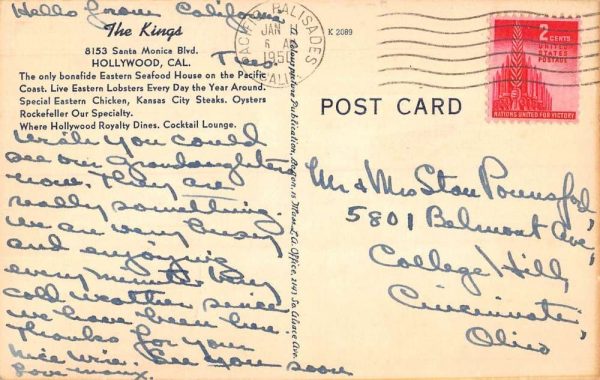 Hello from California
The Kings
8153 Santa Monica Blvd.
HOLLYWOOD, CAL.
Tues.
The only bonafide Eastern Seafood House on the Pacific
Coast. Live Eastern Lobsters Every Day the Year Around.
Special Eastern Chicken, Kansas City Steaks. Oysters
Rockefeller Our Specialty.
Where Hollywood Royalty Dines. Cocktail Lounge.
Wish you could
see our Grandaughters
now. They are
really something.
We are very busy
and enjoying
every minute. Very
cold weather since
we have been here
Thanks for your
nice wire. See you soon
Love
PACIFIC PALISADES
JAN
6
CALIF.
K 2089
2 CENTS
UNITED
STATES
POSTAGE
NATIONS UNITED FOR VICTORY
POST CARD
Mr & Mrs Stan Pounsford,
5801 Belmont Ave,
College Hill,
Cincinnati,
Ohio